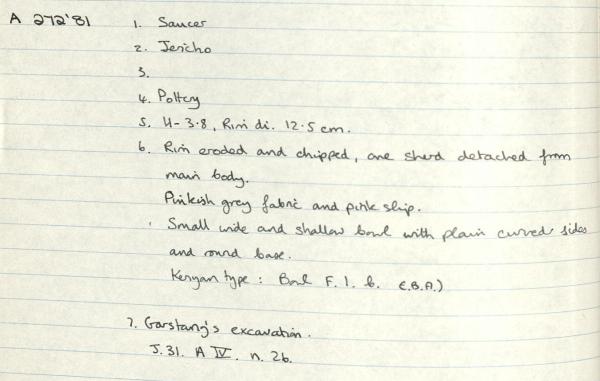 A 272'81
1. Saucer
2. Jericho
3.
4. Pottery
5. H- 3.8, Rim di. 12.5 cm.
6. Rim eroded and chipped, one sherd detached from
main body.
Pinkish grey fabric and pink slip.
Small wide and shallow bowl with plain curved sides
and round base.
Kenyan type : Bowl F. 1. b. E.B.A.)
7. Garstang's excavation.
J.31. A IV. n. 26.